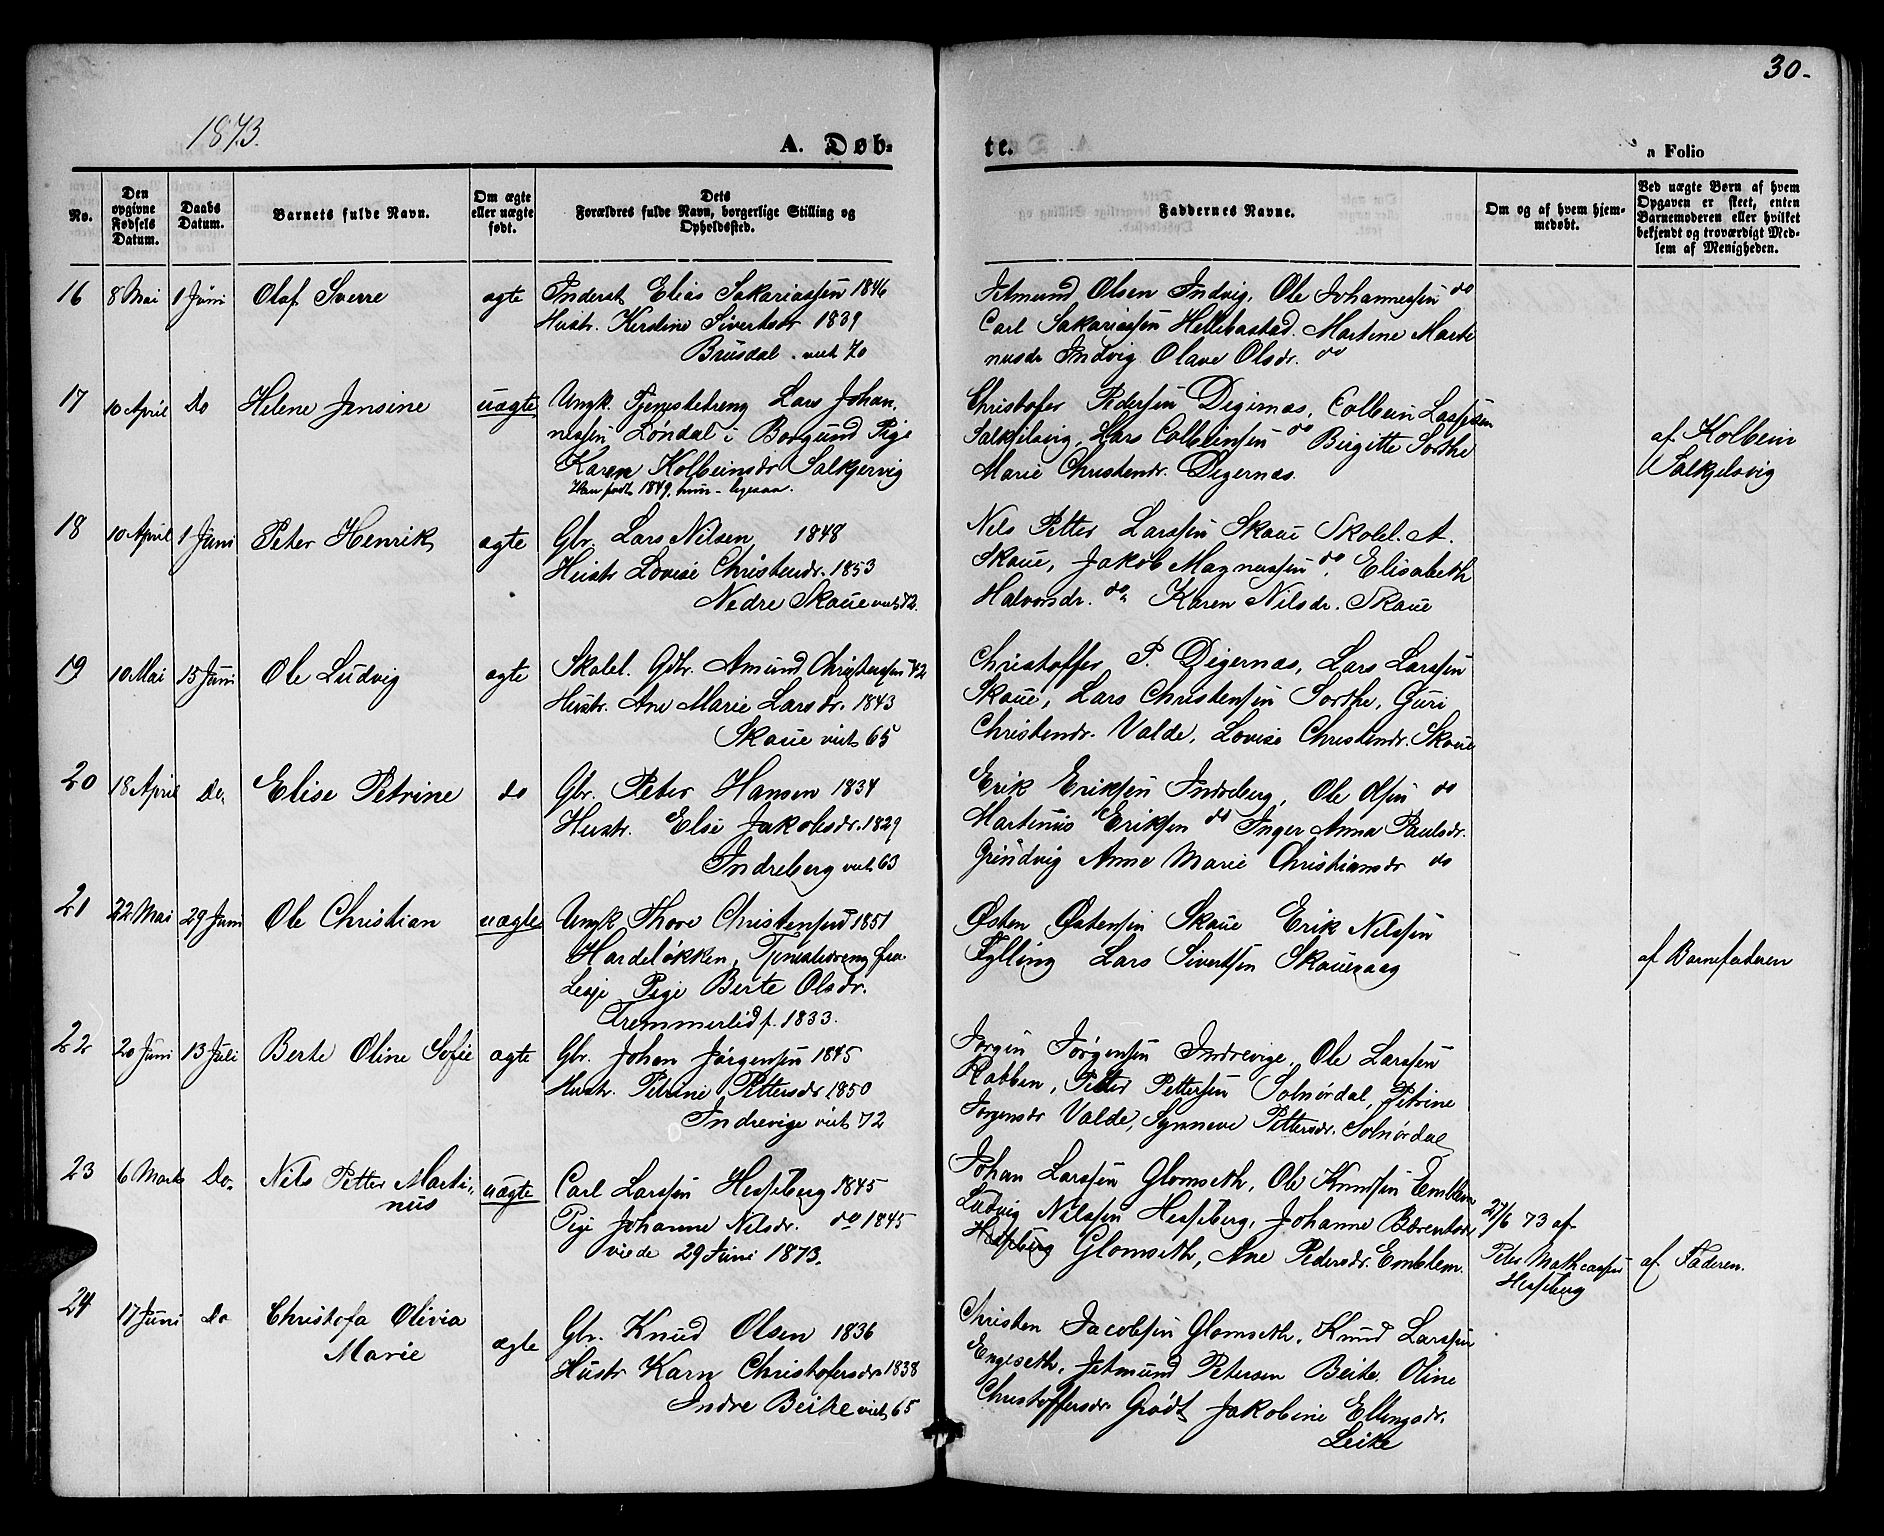 30-
1873.
A. Døb-
te.
n Folio
No.
Den opgivne Fødsels Datum.
Daabs Datum.
Barnets fulde Navn.
Om ægte eller uægte født.
Dets Forældres fulde Navn, borgerlige Stilling og Opholdssted.
Faddernes Navne.
Om og af hvem hjem-medøbt.
Ved uægte Børn af hvem Opgaven er skeet, enten Barnemoderen eller hvilket bekjendt og troværdigt Med-lem af Menigheden.
16 8 Mai 1 Juni Olaf Sverre ægte Inderst Elias Sakariassen 1846
Hustr. Kerdine Sivertsdr 1839
Brusdal. viet 70
Jetmund Olsen Indvig, Ole Johannessen do
Carl Sakariassen Hellebastad. Martine Marti
nusdr Indvig Olave Olsdr. do
17 10 April Do Helene Jensine uægte Ungk. Tjenestedreng Lars Johan,
nessen Løndal i Borgund Pige
Karen Kolbeinsdr Salkjervig
Han født 1849. hun - ligesaa.
Christofer Pedersen Digernæs, Colbein Larssen
Salkjelsvig, Lars Colbeinsen do Birgitte Sorthe
Marie Christendr. Digernæs.
af Kolbein
Salkjelsvig
18 10 April 1 Juni Peter Henrik ægte Gbr. Lars Nilsen 1848
Hustr Lovise Christendr. 1853
Nedre Skaue viet 72.
Nels Petter Larssen Skaue Skolel. A.
Skaue, Jakob Magnussen do, Elisabeth
Halvorsdr. do. Karen Nilsdr. Skaue
19 10 Mai 15 Juni Ole Ludvig ægte Skolel. Gdbr. Amund Christensen 42
Hustr. Ane Marie Larsdr. 1843
Skaue viet 65
Christoffer P. Digernæs, Lars Larssen
Skaue, Lars Christensen Sorthe, Guri
Christendr. Valde, Lovise Christendr. Skaue
20 18 April Do. Elise Petrine do Gbr. Peter Hansen 1834
Hustr. Else Jakobsdr. 1829
Indreberg viet 63
Erik Eriksen Indreberg, Ole Olsen do
Martinus Eriksen do Inger Anna Paulsdr.
Grindvig Anne Marie Christiansdr do
21 22 Mai 29 Juni Ole Christian uægte Ungk Thore Christensen 1851
Hardeløkken, Tjenestedreng fra
Lesje Pige Berte Olsdr.
Tremmerlid f. 1833.
Østen Østensen Skaue Erik Nilssen
Fylling Lars Sivertsen Skauevaag
af Barnefaderen
22 20 Juni 13 Juli Berte Oline Sofie ægte Gbr. Johan Jørgensen 1845
Hustr. Petrine Pettersdr 1850
Indrevige viet 72
Jørgen Jørgensen Indrevige, Ole Larssen
Rabben, Petter Pettersen Solnørdal, Petrine
Jørgensdr Valde, Synneve Pettersdr. Solnørdal
23 6 Marts Do. Nils Petter Marti-
nus
uægte Carl Larssen Hesseberg 1845
Pige Johanne Nilsdr. do 1845
viede 29 Juni 1873.
Johan Larssen Glomseth, Ole Knudsen Emblem
Ludvig Nilssen Hesseberg, Johanne Berentsdr
Hesseberg Glomseth, Ane Pedersdr. Emblem.
27/6 73 af
Peter Mathiassen
Hesseberg
af Faderen.
24 17 Juni Do Christofa Olivia
Marie
ægte Gbr. Knud Olsen 1836
Hustr Karn Christofersdr 1838
Indre Beite viet 65
Christen Jacobsen Glomseth, Knud Larssen
Engeseth, Jetmund Petersen Beite. Oline
Christoffersdr Grødt Jakobine Ellingsdr.
Leite